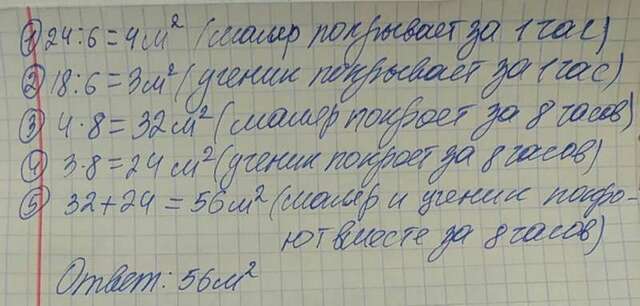 ① 24:6=4м² (маляр покрывает за 1 час)
② 18:6=3м² (ученик покрывает за 1 час)
③ 4·8=32м² (маляр покроет за 8 часов)
④ 3·8=24м² (ученик покроет за 8 часов)
⑤ 32+24=56м² (маляр и ученик покро-
ют вместе за 8 часов)
Ответ: 56м²